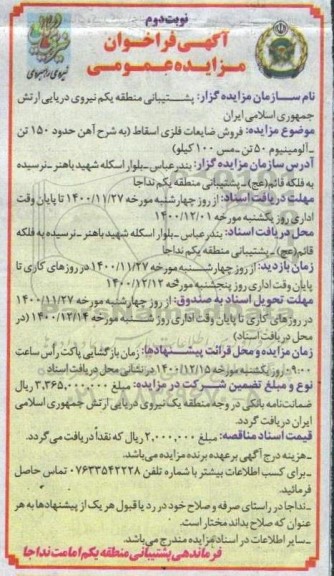 نوبت دوم
آگهی فراخوان
مزایده عمومی
نام سازمان مزایده گزار: پشتیبانی منطقه یکم نیروی دریایی ارتش
جمهوری اسلامی ایران
موضوع مزایده: فروش ضایعات فلزی اسقاط (به شرح آهن حدود ۱۵۰ تن
-آلومینیوم ۵۰ تن -مس ۱۰۰ کیلو)
آدرس سازمان مزایده گزار: بندرعباس-بلوار اسکله شهید باهنر-نرسیده
به فلکه قائم(عج)-پشتیبانی منطقه یکم نداجا
مهلت دریافت اسناد: از روز چهارشنبه مورخه ۱۴۰۰/۱۱/۲۷ تا پایان وقت
اداری روز یکشنبه مورخه ۱۴۰۰/۱۲/۰۱
محل دریافت اسناد: بندرعباس-بلوار اسکله شهید باهنر-نرسیده به فلکه
قائم(عج)-پشتیبانی منطقه یکم نداجا
زمان بازدید: از روز چهارشنبه مورخه ۱۴۰۰/۱۱/۲۷ در روزهای کاری تا
پایان وقت اداری روز پنجشنبه مورخه ۱۴۰۰/۱۲/۱۲
مهلت تحویل اسناد به صندوق: از روز چهارشنبه مورخه ۱۴۰۰/۱۱/۲۷
در روزهای کاری تا پایان وقت اداری روز شنبه مورخه ۱۴۰۰/۱۲/۱۴ (در
محل دریافت اسناد)
زمان مزایده و محل قرائت پیشنهادها: زمان بازگشایی پاکت رأس ساعت
۰۹:۰۰ روز یکشنبه مورخه ۱۴۰۰/۱۲/۱۵ در نشانی محل دریافت اسناد
نوع و مبلغ تضمین شرکت در مزایده: مبلغ ۳,۳۶۵,۰۰۰,۰۰۰ ریال
ضمانت‌نامه بانکی در وجه منطقه یک نیروی دریایی ارتش جمهوری اسلامی
ایران دریافت گردد.
قیمت اسناد مناقصه: مبلغ ۲,۰۰۰,۰۰۰ ریال که نقداً دریافت می‌گردد.
-هزینه درج آگهی بر عهده برنده مزایده می‌باشد.
-برای کسب اطلاعات بیشتر با شماره تلفن ۰۷۶۳۳۵۴۲۲۲۸ تماس حاصل
فرمائید.
-نداجا در راستای صرفه و صلاح خود در رد یا قبول هر یک از پیشنهادها به هر
عنوان که صلاح بداند مختار است.
-سایر اطلاعات در اسناد مزایده مندرج می‌باشد.
فرماندهی پشتیبانی منطقه یکم امامت نداجا